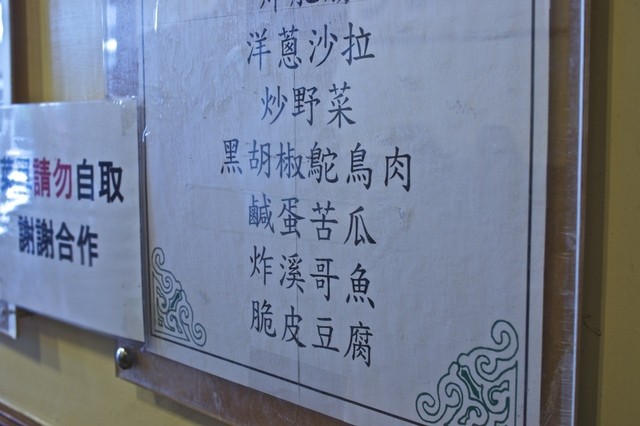 洋蔥沙拉
炒野菜
黑胡椒鴕鳥肉
鹹蛋苦瓜
炸溪哥魚
脆皮豆腐
請勿自取
謝謝合作